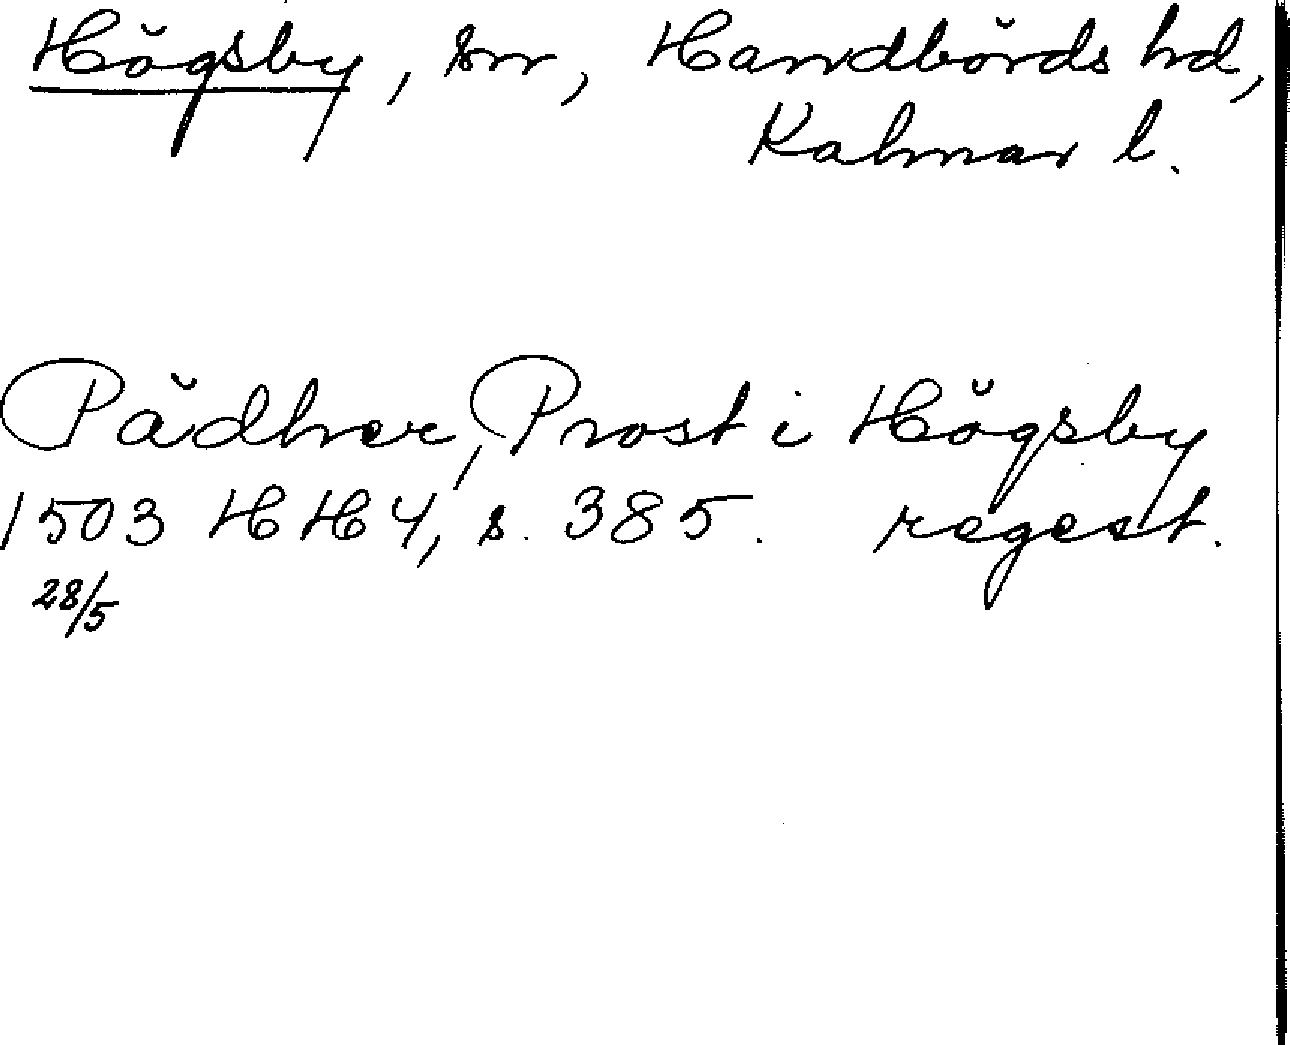 Högsby, sn, Handbörds hd,
Kalmar l.
Pädher, Prost i Högsby
1503 HH 4, s. 385. regest.
28/5